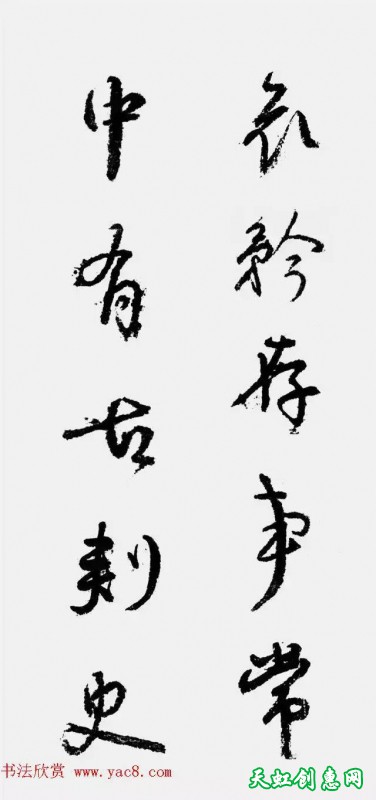 哀矜存事常
中有古刺史
书法欣赏 www.yac8.com
天虹创惠网